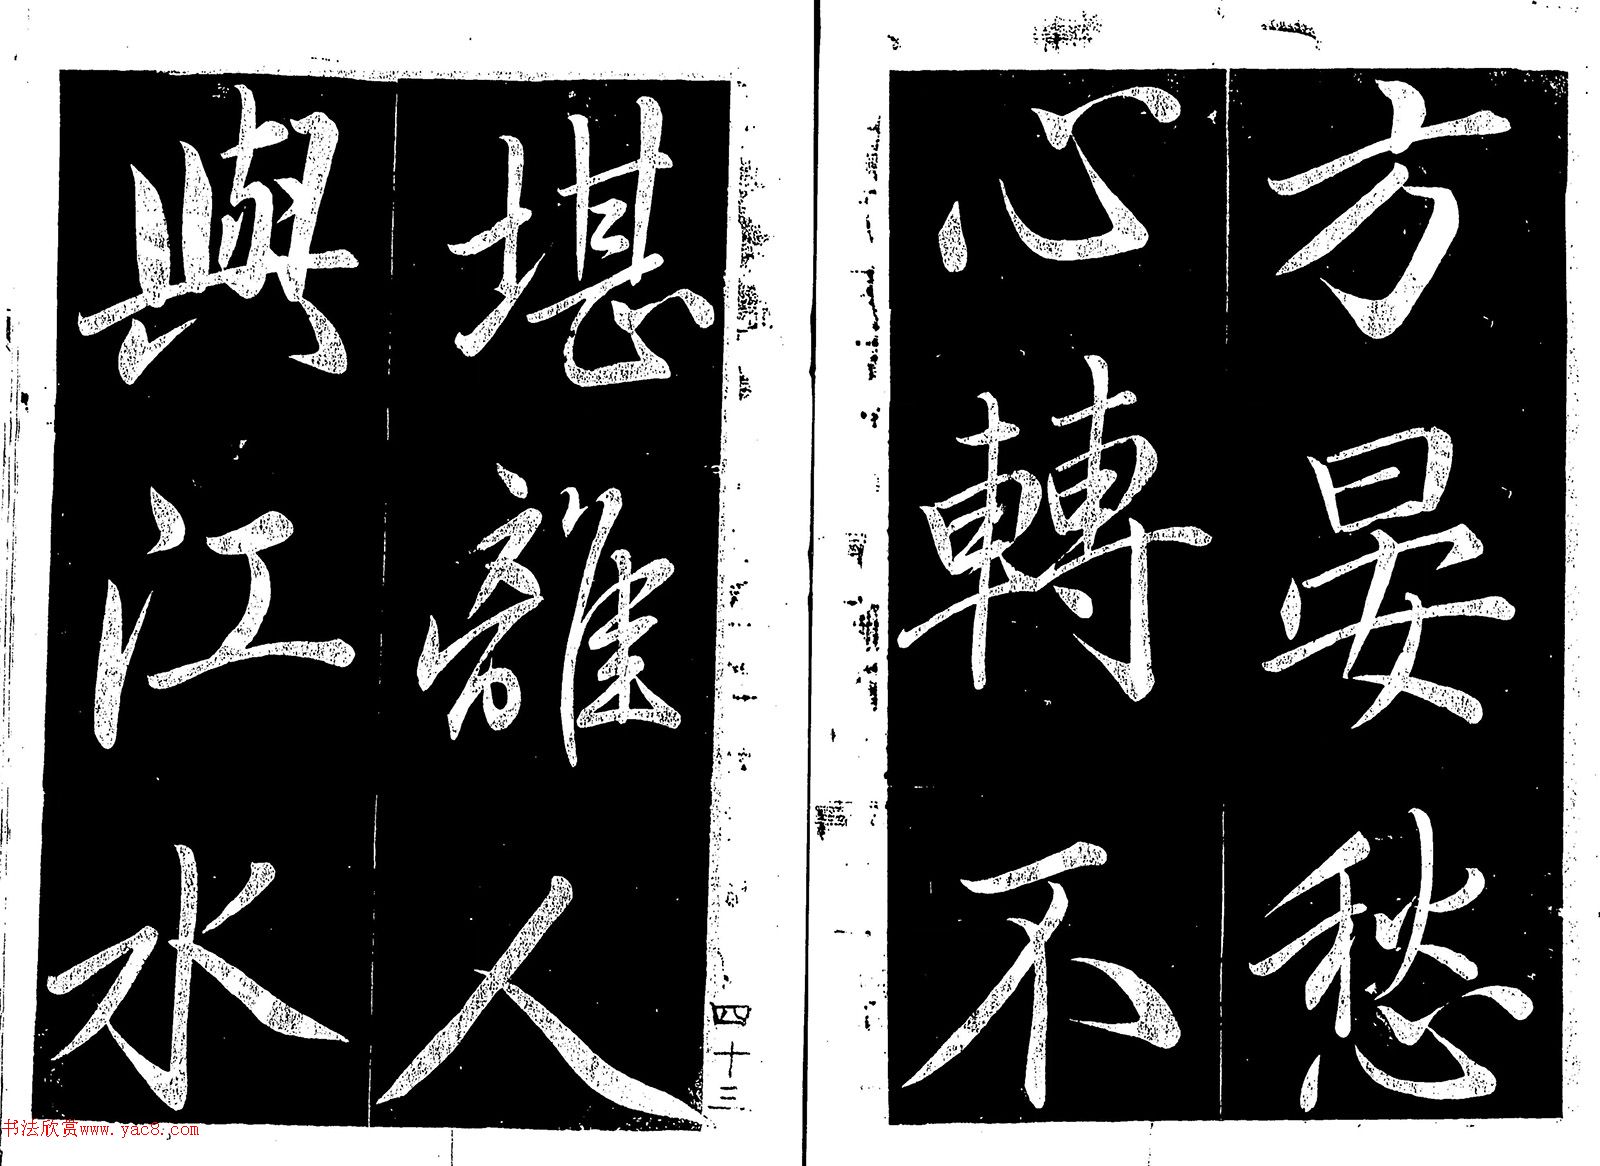 方晏愁
心轉不
堪離人
與江水
四十三
书法欣赏www.yac8.com